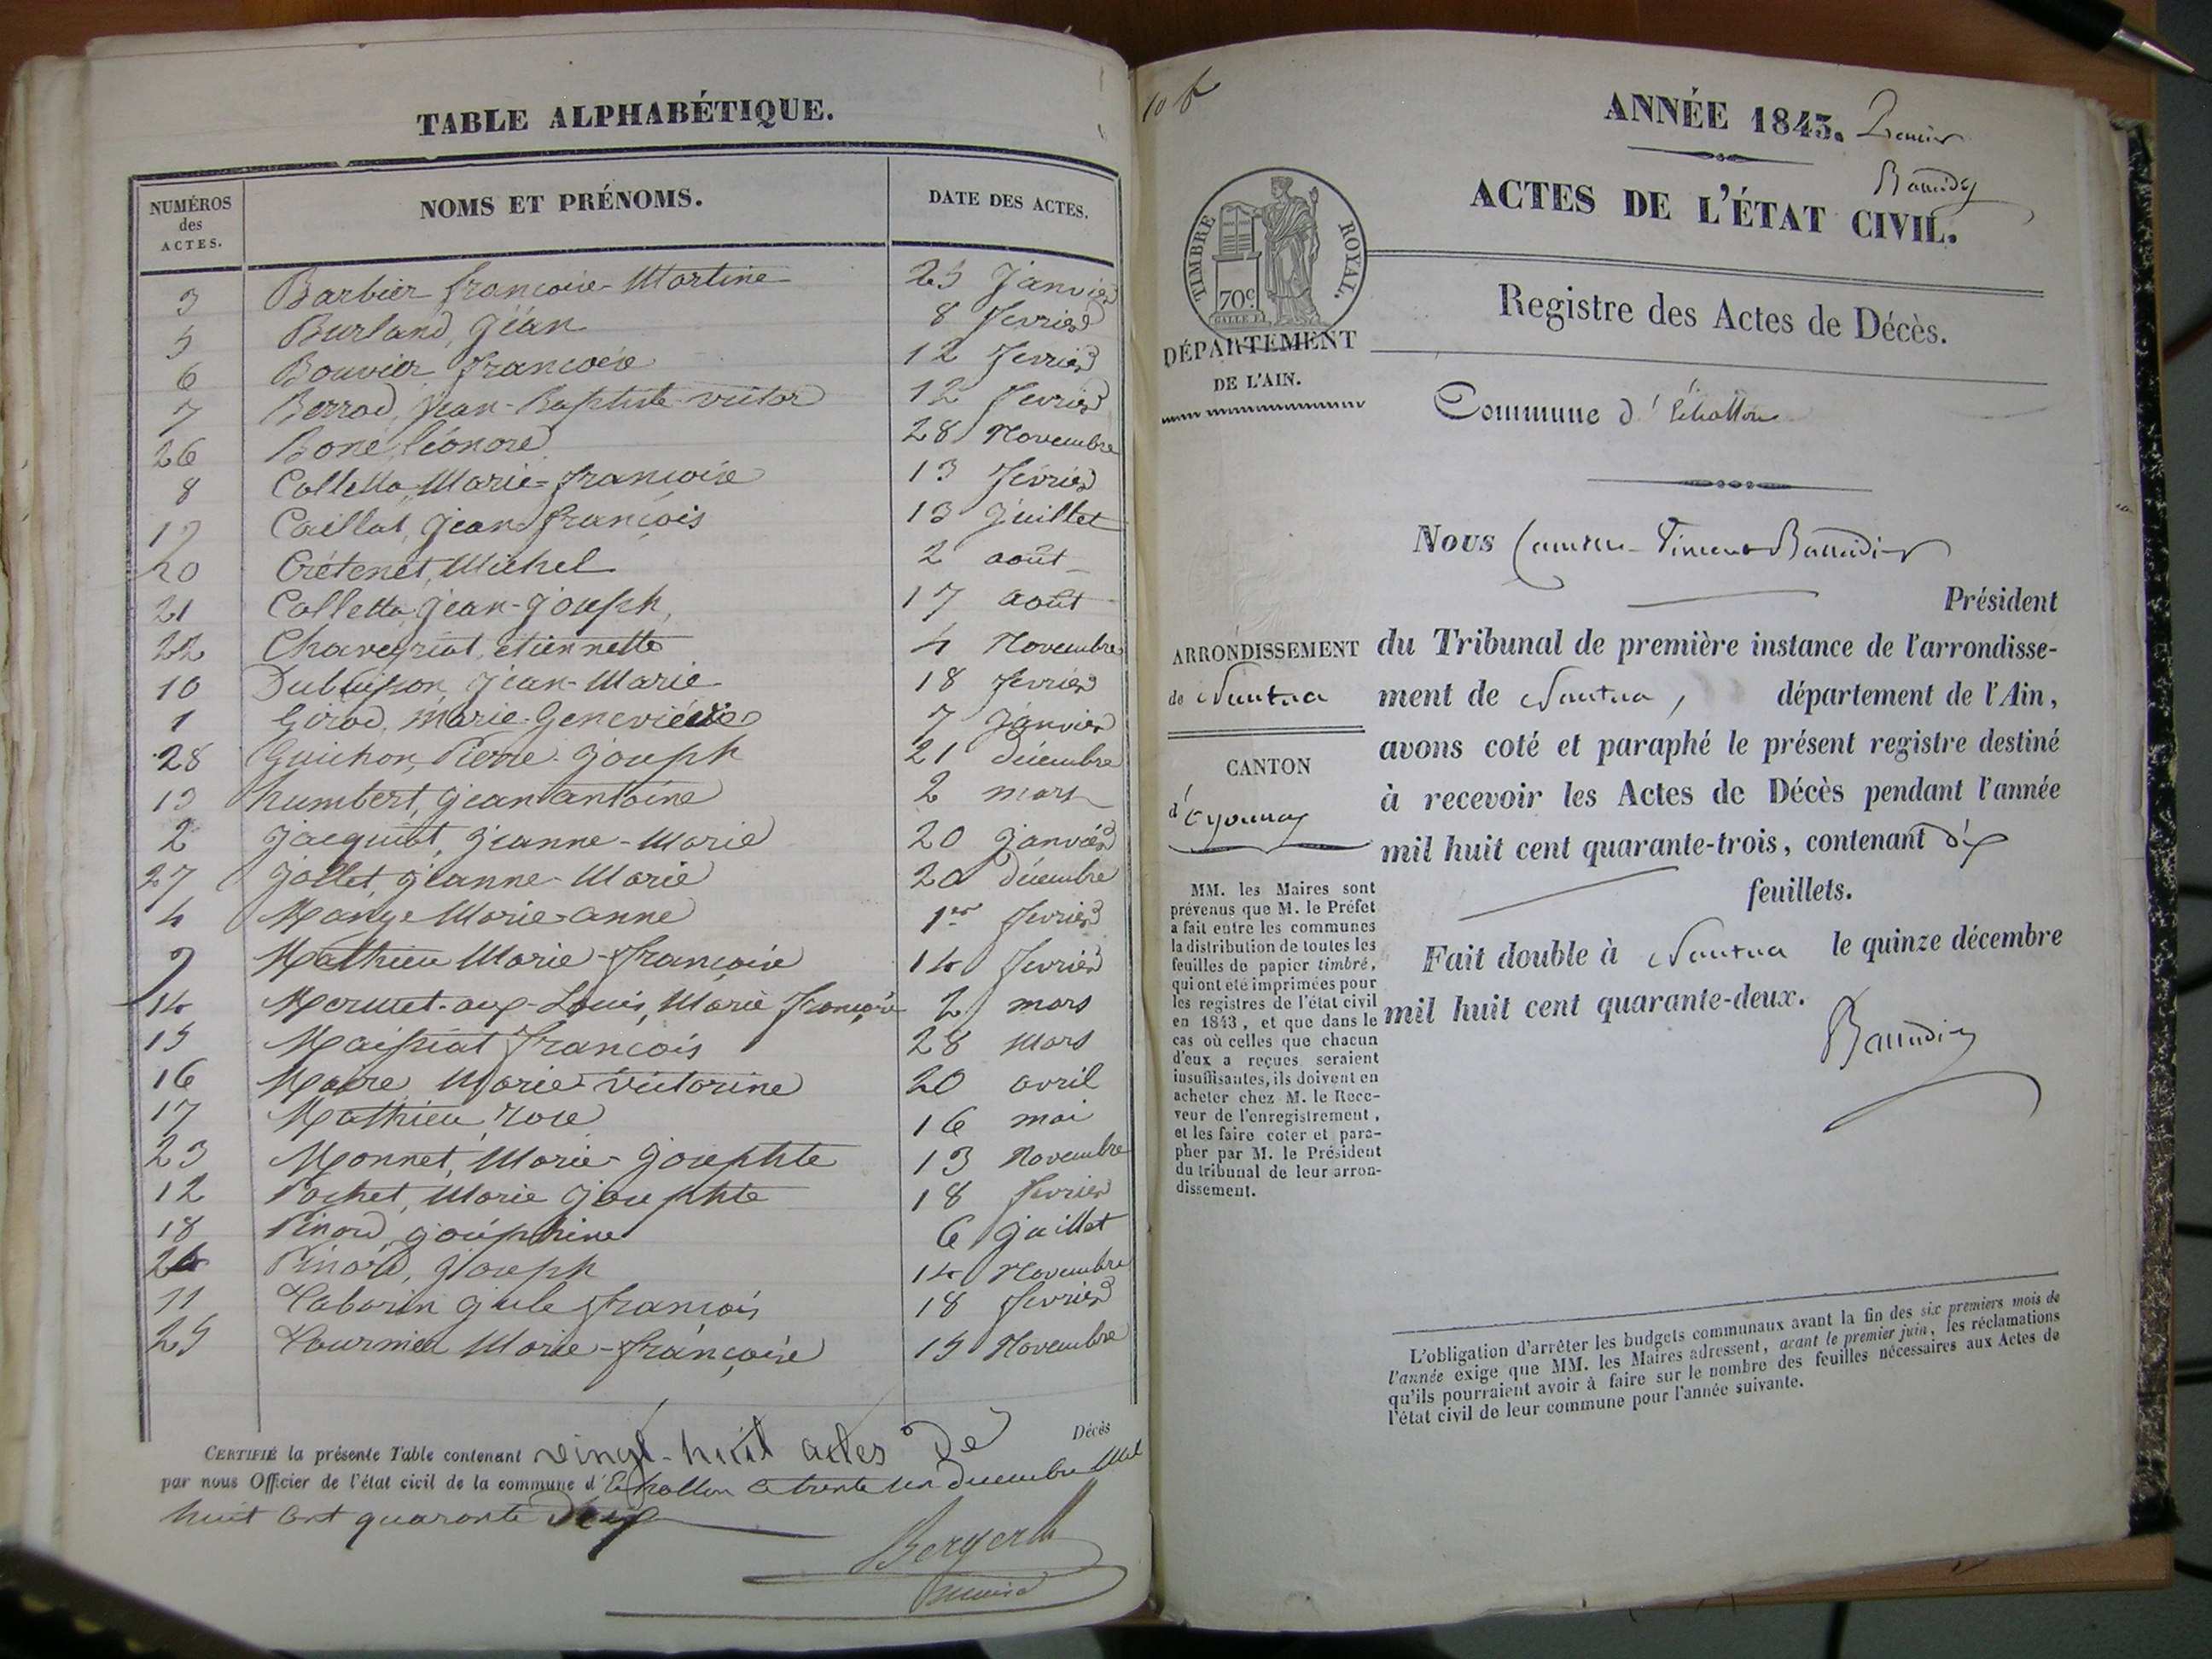 TABLE ALPHABÉTIQUE.
NUMÉROS des ACTES. NOMS ET PRÉNOMS. DATE DES ACTES.
3 Barbier françoise-Martine 25 Janvier
5 Burland, Jéan 8 fevrier
6 Bouvier françoise 12 fevrier
7 Berrod, Jean-Baptiste victor 12 fevrier
26 Boné, léonore 28 Novembre
8 Colletta Marie-françoise 13 février
19 Caillat, Jean françois 13 Juillet
20 Crétenet, Michel 2 août
21 Colletta Jean-Joseph, 17 août
22 Chaveyriat, etiennette 4 Novembre
10 Dubuisson, Jean-Marie 18 fevrier
1 Girod, Marie-Geneviève 7 Janvier
28 Guichon, Pierre-Joseph 21 décembre
13 humbert, Jean antoine 2 mars
2 Jacquiot, Jeanne-Marie 20 Janvier
27 Jollet, Jeanne-Marie 20 décembre
4 Marie-anne 1er fevrier
9 Mathieu Marie-françoise 14 fevrier
14 Mermet-aux-Louis, Marie françoise 2 mars
15 Maissiat françois 28 mars
16 Marie-victorine 20 avril
17 Mathieu, rose 16 mai
23 Monnet, Marie-Josephte 13 Novembre
12 Pochet, Marie Josephte 18 fevrier
18 Pinard Joséphine 6 Juillet
24 Pinard, Joseph 14 Novembre
11 Tabarin Jule françois 18 fevrier
25 Tournier Marie-françoise 15 Novembre
CERTIFIÉ la présente Table contenant vingt-huit actes de Décès
par nous Officier de l'état civil de la commune d'Echallon le trente un decembre Mil
huit cent quarante deux
maire
ANNÉE 1843. Premier
Baudin
ACTES DE L'ÉTAT CIVIL.
TIMBRE ROYAL.
70c
Registre des Actes de Décès.
DÉPARTEMENT
DE L'AIN.
Commune d'Echallon
Nous Vincent
Président
ARRONDISSEMENT
de Nantua
CANTON
d'Oyonnax
du Tribunal de première instance de l'arrondisse-
ment de Nantua, département de l'Ain,
avons coté et paraphé le présent registre destiné
à recevoir les Actes de Décès pendant l'année
mil huit cent quarante-trois, contenant dix
feuillets.
Fait double à Nantua le quinze décembre
mil huit cent quarante-deux.
MM. les Maires sont
prévenus que M. le Préfet
a fait entre les communes
la distribution de toutes les
feuilles de papier timbré,
qui ont été imprimées pour
les registres de l'état civil
en 1843, et que dans le
cas où celles que chacun
d'eux a reçues seraient
insuffisantes, ils doivent en
acheter chez M. le Rece-
veur de l'enregistrement,
et les faire coter et para-
pher par M. le Président
du tribunal de leur arron-
dissement.
L'obligation d'arrêter les budgets communaux avant la fin des six premiers mois de
l'année exige que MM. les Maires adressent, avant le premier juin, les réclamations
qu'ils pourraient avoir à faire sur le nombre des feuilles nécessaires aux Actes de
l'état civil de leur commune pour l'année suivante.